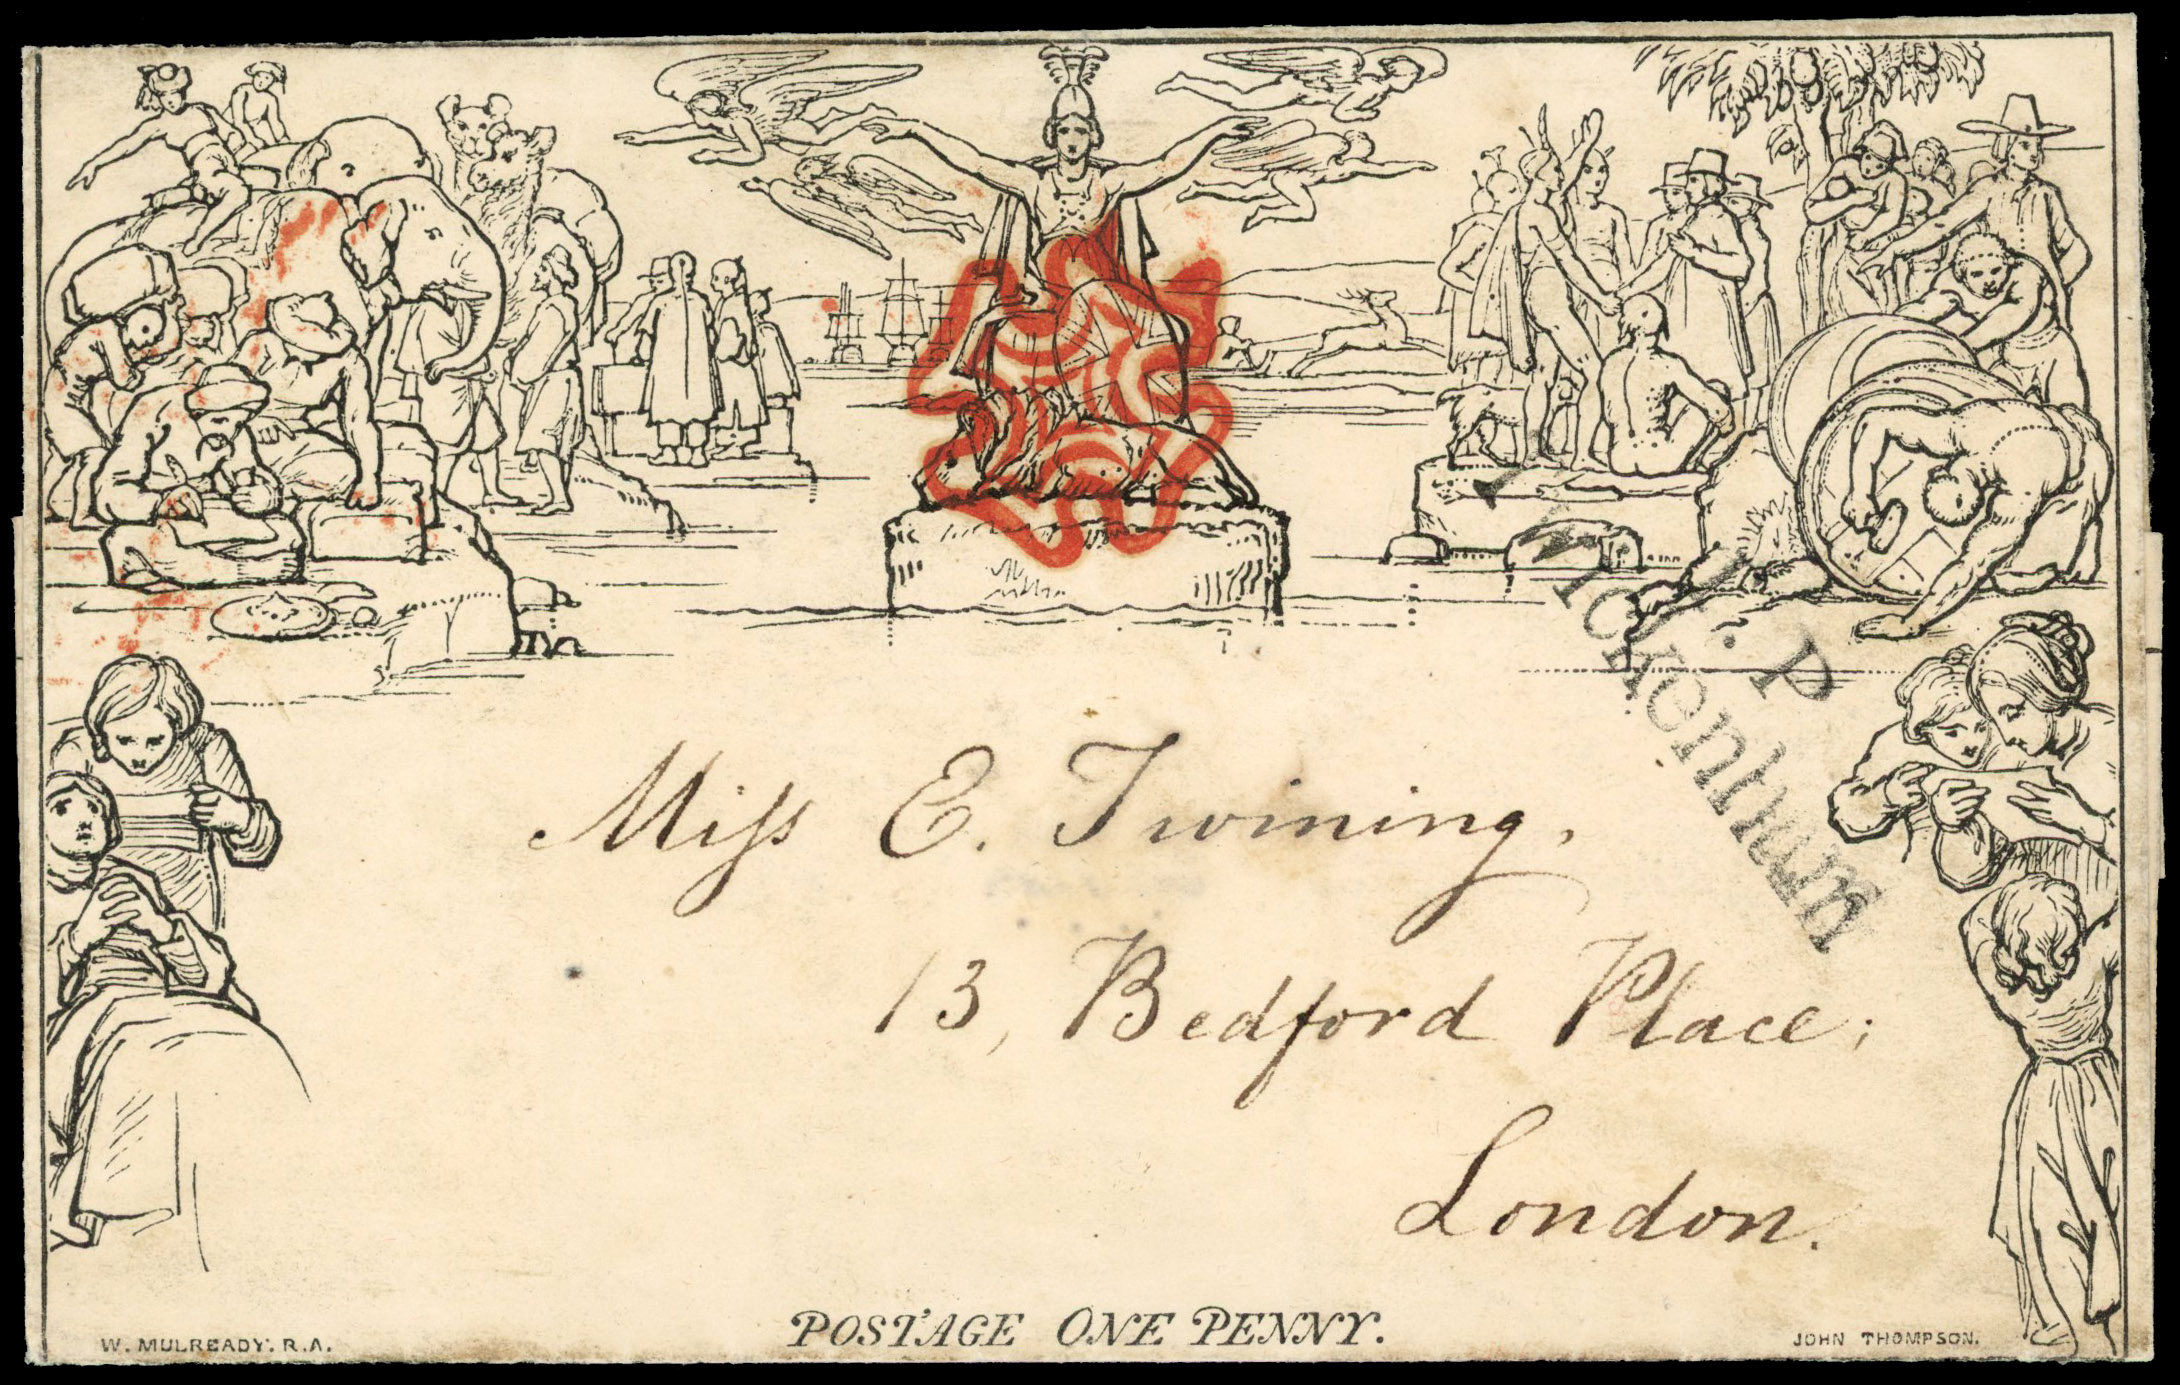 T.P
Twickenham
Miss E. Twining,
13, Bedford Place;
London.
POSTAGE ONE PENNY.
W. MULREADY. R.A.
JOHN THOMPSON.